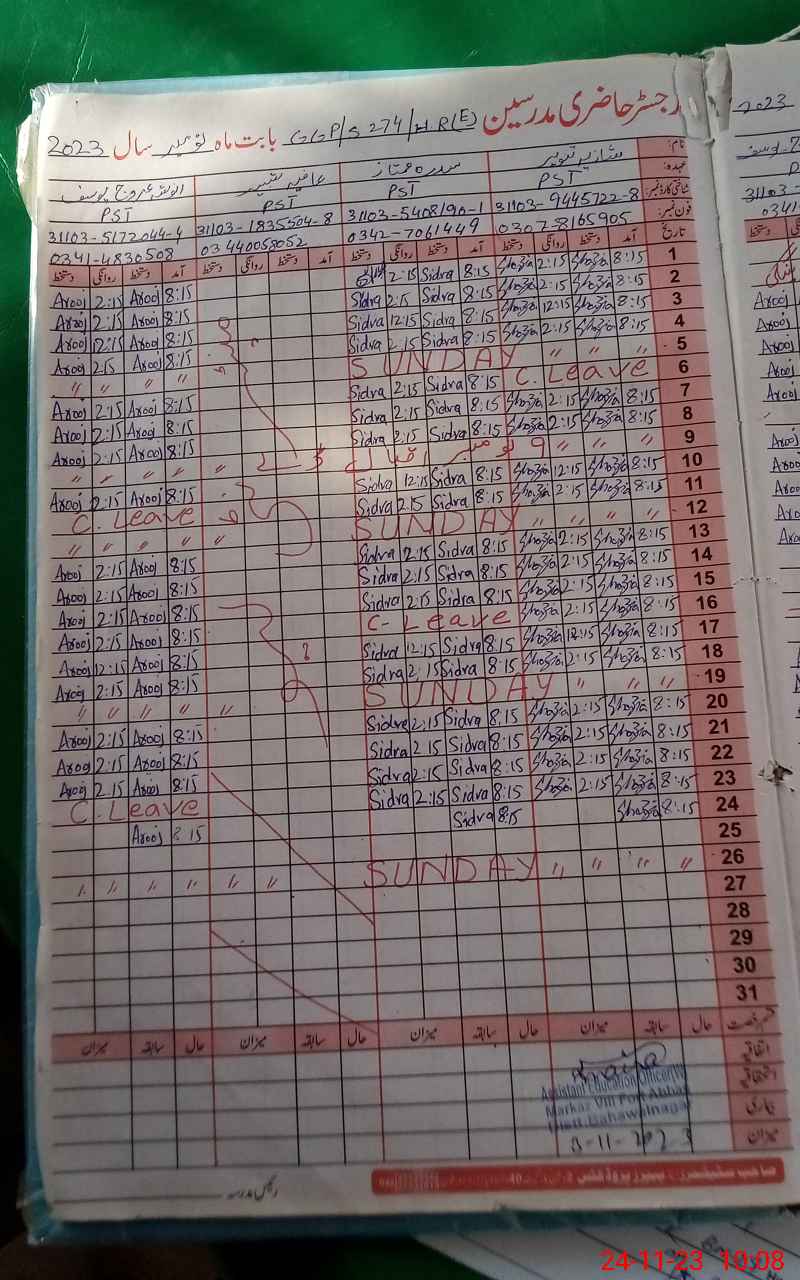 رجسٹر حاضری مدرسین GGP/S 274/H.R(E) بابت ماہ نومبر سال 2023
نام: شازیہ تنویر سدرہ ممتاز
عہدہ: PST PST PST PST
شناختی کارڈ نمبر: 31103-9445722-8 31103-5408190-1 31103-1835504-8 31103-5172044-4
فون نمبر: 0307-8165905 0342-7061449 03440058052 0341-4830508
تاریخ آمد دستخط روانگی دستخط آمد دستخط روانگی دستخط آمد دستخط روانگی دستخط آمد دستخط روانگی دستخط
1 8:15 Shazia 2:15 Shazia 8:15 Sidra 2:15 8:15 Arooj 2:15 Arooj
2 8:15 Shazia 2:15 Shazia 8:15 Sidra 2:15 Sidra 8:15 Arooj 2:15 Arooj
3 8:15 Shazia 12:15 Shazia 8:15 Sidra 12:15 Sidra 8:15 Arooj 12:15 Arooj
4 8:15 Shazia 2:15 Shazia 8:15 Sidra 2:15 Sidra 8:15 Arooj 2:15 Arooj
5 SUNDAY " " " " " " "
6 C. Leave 8:15 Sidra 2:15 Sidra 8:15 Arooj 2:15 Arooj
7 8:15 Shazia 2:15 Shazia 8:15 Sidra 2:15 Sidra 8:15 Arooj 2:15 Arooj
8 8:15 Shazia 2:15 Shazia 8:15 Sidra 2:15 Sidra 8:15 Arooj 2:15 Arooj
9 " " " 9 نومبر اقبال ڈے " " " " "
10 8:15 Shazia 12:15 Shazia 8:15 Sidra 12:15 Sidra 8:15 Arooj 2:15 Arooj
11 8:15 Shazia 2:15 Shazia 8:15 Sidra 2:15 Sidra C. Leave
12 SUNDAY " " " " " " " "
13 8:15 Shazia 2:15 Shazia 8:15 Sidra 2:15 Sidra 8:15 Arooj 2:15 Arooj
14 8:15 Shazia 2:15 Shazia 8:15 Sidra 2:15 Sidra 8:15 Arooj 2:15 Arooj
15 8:15 Shazia 2:15 Shazia 8:15 Sidra 2:15 Sidra 8:15 Arooj 2:15 Arooj
16 8:15 Shazia 2:15 Shazia C. Leave 8:15 Arooj 2:15 Arooj
17 8:15 Shazia 12:15 Shazia 8:15 Sidra 12:15 Sidra 8:15 Arooj 12:15 Arooj
18 8:15 Shazia 2:15 Shazia 8:15 Sidra 2:15 Sidra 8:15 Arooj 2:15 Arooj
19 SUNDAY " " " " " " "
20 8:15 Shazia 2:15 Shazia 8:15 Sidra 2:15 Sidra 8:15 Arooj 2:15 Arooj
21 8:15 Shazia 2:15 Shazia 8:15 Sidra 2:15 Sidra 8:15 Arooj 2:15 Arooj
22 8:15 Shazia 2:15 Shazia 8:15 Sidra 2:15 Sidra 8:15 Arooj 2:15 Arooj
23 8:15 Shazia 2:15 Shazia 8:15 Sidra 2:15 Sidra C. Leave
24 8:15 Shazia 8:15 Sidra 8:15 Arooj
25
26 SUNDAY " " " " " " " " " "
27
28
29
30
31
قسم رخصت حال سابقہ میزان حال سابقہ میزان حال سابقہ میزان حال سابقہ میزان
اتفاقیہ
استحقاقیہ
بیماری
میزان
Assistant Education Officer (W)
Markaz VIII Fort Abbas
Distt. Bahawalnagar
13-11-2023
رئیس مدرسہ
2023
31103
0341
24-11-23 10:08